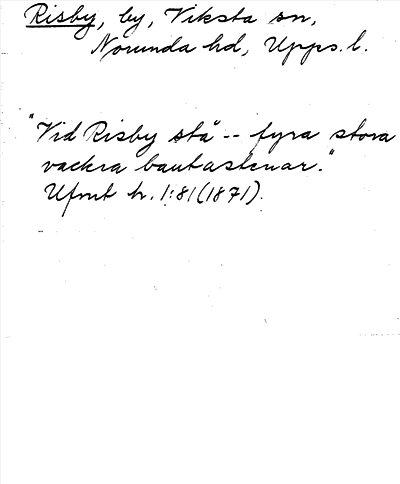 Risby, by, Viksta sn,
Norunda hd, Upps. l.
"Vid Risby stå -- fyra stora
vackra bautastenar."
Ufmt h. 1:81 (1871).